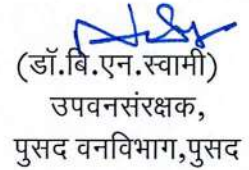 (डॉ.बि.एन.स्वामी)
उपवनसंरक्षक,
पुसद वनविभाग,पुसद